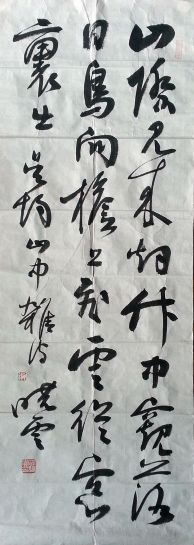 山際見來烟竹中窺落
日鳥向檐上飛雲從窗
裏出 吴均山中雜诗 曉雲